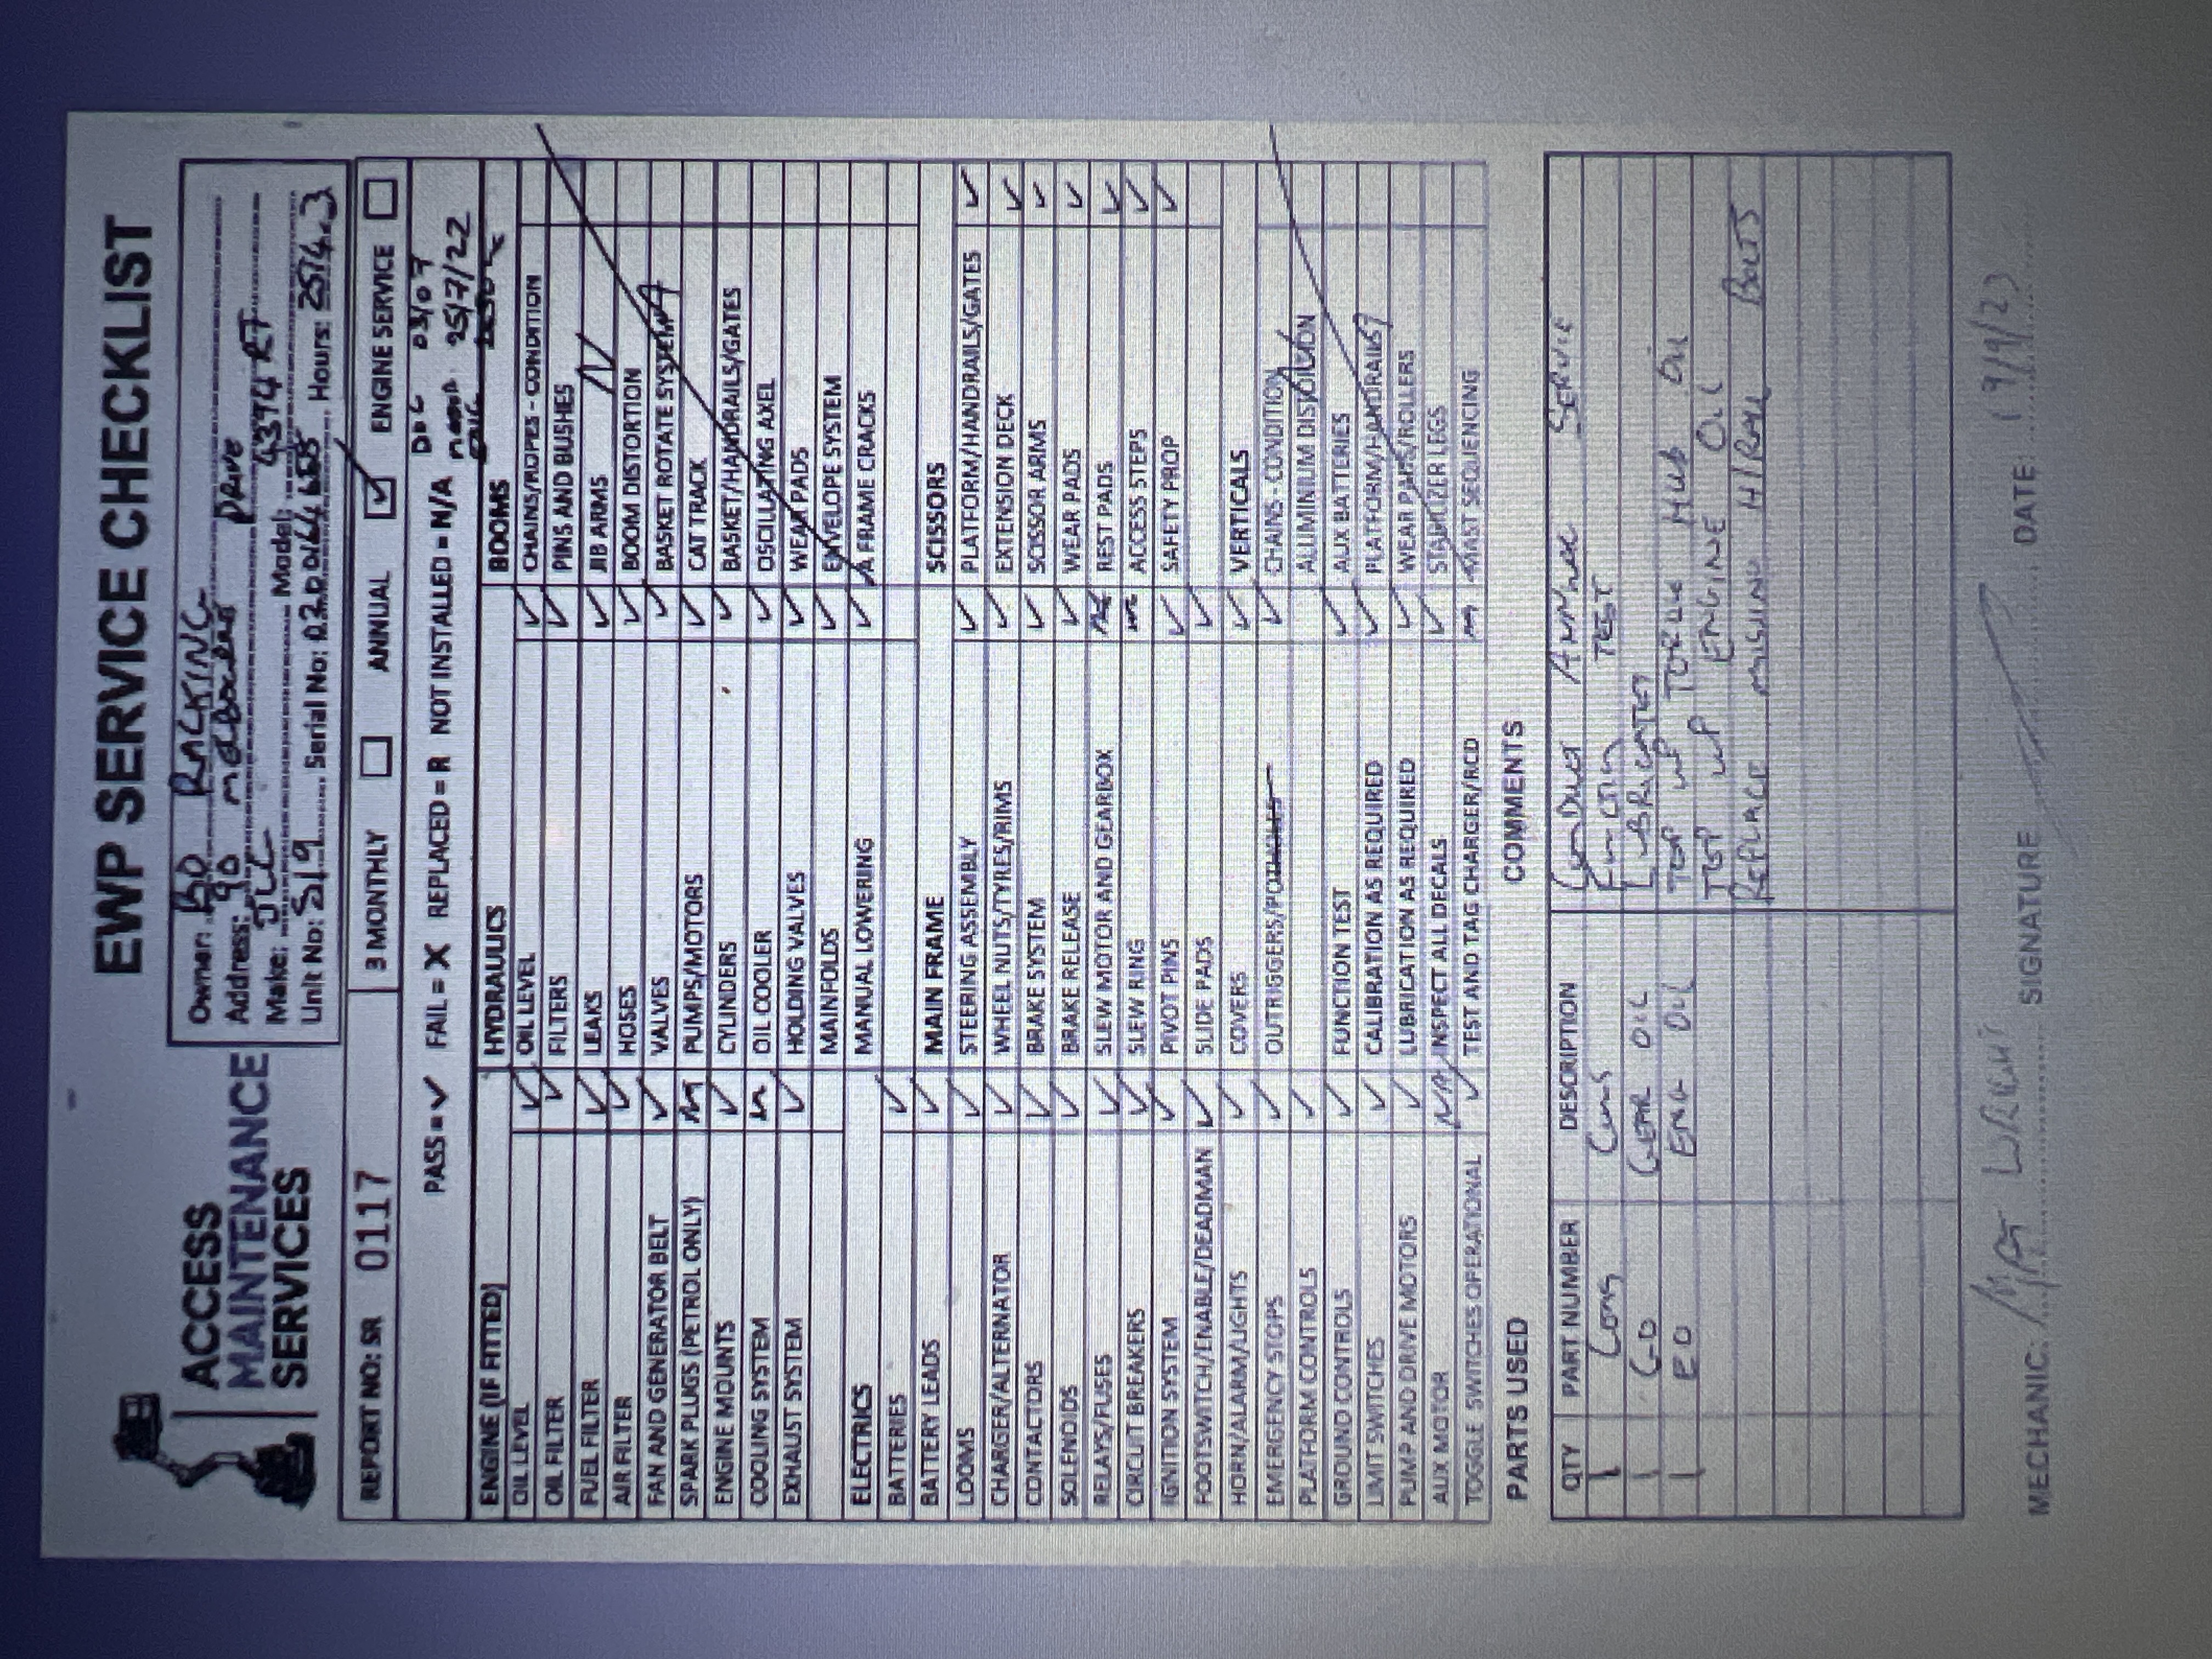 EWP SERVICE CHECKLIST
ACCESS
MAINTENANCE
SERVICES
Owner: BD RACKING
Address: 90 DRIVE
Make: JLG Model: 4394 RT
Unit No: S19 Serial No: Hours: 2514.3
REPORT NO: SR 0117
3 MONTHLY ANNUAL ENGINE SERVICE
PASS = ✓ FAIL = X REPLACED = R NOT INSTALLED = N/A
03/07
25/7/22
ENGINE (IF FITTED)
OIL LEVEL ✓
OIL FILTER ✓
FUEL FILTER ✓
AIR FILTER ✓
FAN AND GENERATOR BELT ✓
SPARK PLUGS (PETROL ONLY)
ENGINE MOUNTS ✓
COOLING SYSTEM
EXHAUST SYSTEM ✓
ELECTRICS
BATTERIES ✓
BATTERY LEADS ✓
LOOMS ✓
CHARGER/ALTERNATOR ✓
CONTACTORS ✓
SOLENOIDS ✓
RELAYS/FUSES ✓
CIRCUIT BREAKERS ✓
IGNITION SYSTEM ✓
FOOTSWITCH/ENABLE/DEADMAN ✓
HORN/ALARM/LIGHTS ✓
EMERGENCY STOPS ✓
PLATFORM CONTROLS ✓
GROUND CONTROLS ✓
LIMIT SWITCHES ✓
PUMP AND DRIVE MOTORS ✓
AUX MOTOR N/A
TOGGLE SWITCHES OPERATIONAL ✓
HYDRAULICS
OIL LEVEL ✓
FILTERS ✓
LEAKS ✓
HOSES ✓
VALVES ✓
PUMPS/MOTORS ✓
CYLINDERS ✓
OIL COOLER ✓
HOLDING VALVES ✓
MAINFOLDS ✓
MANUAL LOWERING ✓
MAIN FRAME
STEERING ASSEMBLY ✓
WHEEL NUTS/TYRES/RIMS ✓
BRAKE SYSTEM ✓
BRAKE RELEASE ✓
SLEW MOTOR AND GEARBOX
SLEW RING
PIVOT PINS ✓
SLIDE PADS ✓
COVERS ✓
OUTRIGGERS/POTHOLES ✓
FUNCTION TEST ✓
CALIBRATION AS REQUIRED ✓
LUBRICATION AS REQUIRED ✓
INSPECT ALL DECALS ✓
TEST AND TAG CHARGER/RCD
BOOMS
CHAINS/ROPES - CONDITION
PINS AND BUSHES
JIB ARMS
BOOM DISTORTION
BASKET ROTATE SYSTEM
CAT TRACK
BASKET/HANDRAILS/GATES
OSCILLATING AXEL
WEAR PADS
ENVELOPE SYSTEM
A FRAME CRACKS
SCISSORS
PLATFORM/HANDRAILS/GATES ✓
EXTENSION DECK ✓
SCISSOR ARMS ✓
WEAR PADS ✓
REST PADS ✓
ACCESS STEPS ✓
SAFETY PROP ✓
VERTICALS
CHAINS - CONDITION
ALUMINIUM DISTORTION
AUX BATTERIES
PLATFORM/HANDRAILS
WEAR PADS/ROLLERS
STABILIZER LEGS
MAST SEQUENCING
PARTS USED
QTY PART NUMBER DESCRIPTION
1 CONS CONS
1 GO GEAR OIL
1 EO ENG OIL
COMMENTS
CONDUCT ANNUAL SERVICE
FUNCTION TEST
LUBRICATED
TOP UP TORQUE HUB OIL
TOP UP ENGINE OIL
REPLACE MISSING H/RAIL BOLTS
MECHANIC: SIGNATURE DATE: 19/9/23